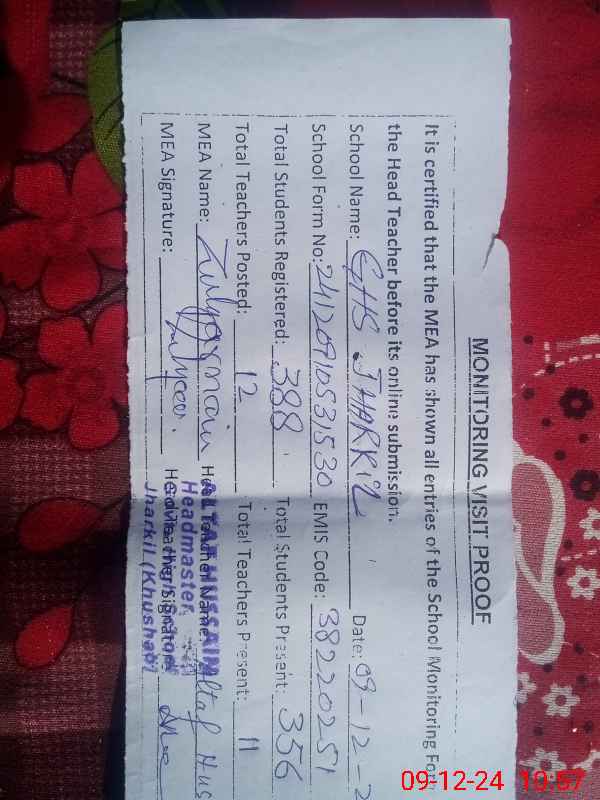 MONITORING VISIT PROOF
It is certified that the MEA has shown all entries of the School Monitoring For
the Head Teacher before its online submission.
School Name: GHS JHARKIL Date: 09-12-2
School Form No: EMIS Code: 38220251
Total Students Registered: 388 Total Students Present: 356
Total Teachers Posted: 12 Total Teachers Present: 11
MEA Name: Head Teacher Name: Altaf Hus
MEA Signature: Head Teacher Signature
ALTAF HUSSAIN
Headmaster
Govt. High School
Jharkil (Khushab)
09-12-24 10:57